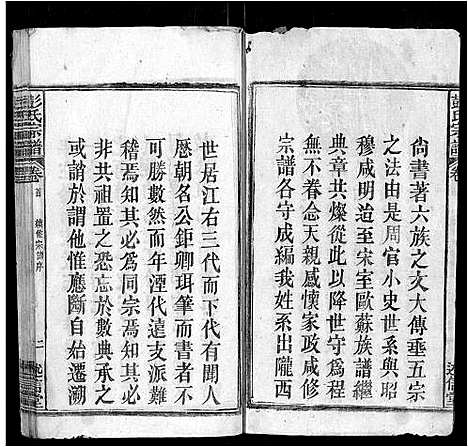 尚書著六族之文大傳垂五宗
之法由是周官小史世系與昭
穆咸明迨至宋室歐蘇族譜繼
典章共燦從此以降世守為程
無不眷念天親感懷家政咸修
宗譜各守成編我姓系出隴西
世居江右三代而下代有聞人
歷朝名公鉅卿珥筆而書者不
可勝數然而年湮代遠支派難
稽焉知其必為同宗焉知其必
非共祖置之恐忘於典承之
或謟於謂他惟應斷自始遷溯
彭氏宗譜
卷
首
續修宗譜序
二
彭氏宗譜
卷